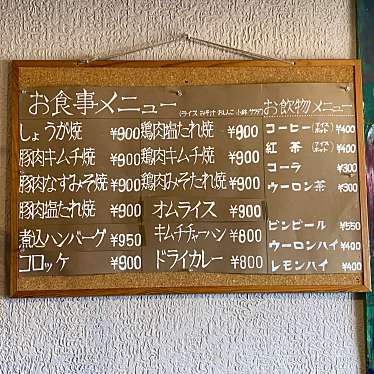 お食事メニュー
(ライス みそ汁 おしんこ 小鉢 サラダ)
しょうが焼 ¥900
豚肉キムチ焼 ¥900
豚肉なすみそ焼 ¥900
豚肉塩たれ焼 ¥900
煮込ハンバーグ ¥950
コロッケ ¥900
鶏肉塩たれ焼 ¥900
鶏肉キムチ焼 ¥900
鶏肉みそたれ焼 ¥900
オムライス ¥900
キムチチャーハン ¥800
ドライカレー ¥800
お飲物メニュー
コーヒー ¥400
紅茶 ¥400
コーラ ¥300
ウーロン茶 ¥300
ビンビール ¥550
ウーロンハイ ¥400
レモンハイ ¥400